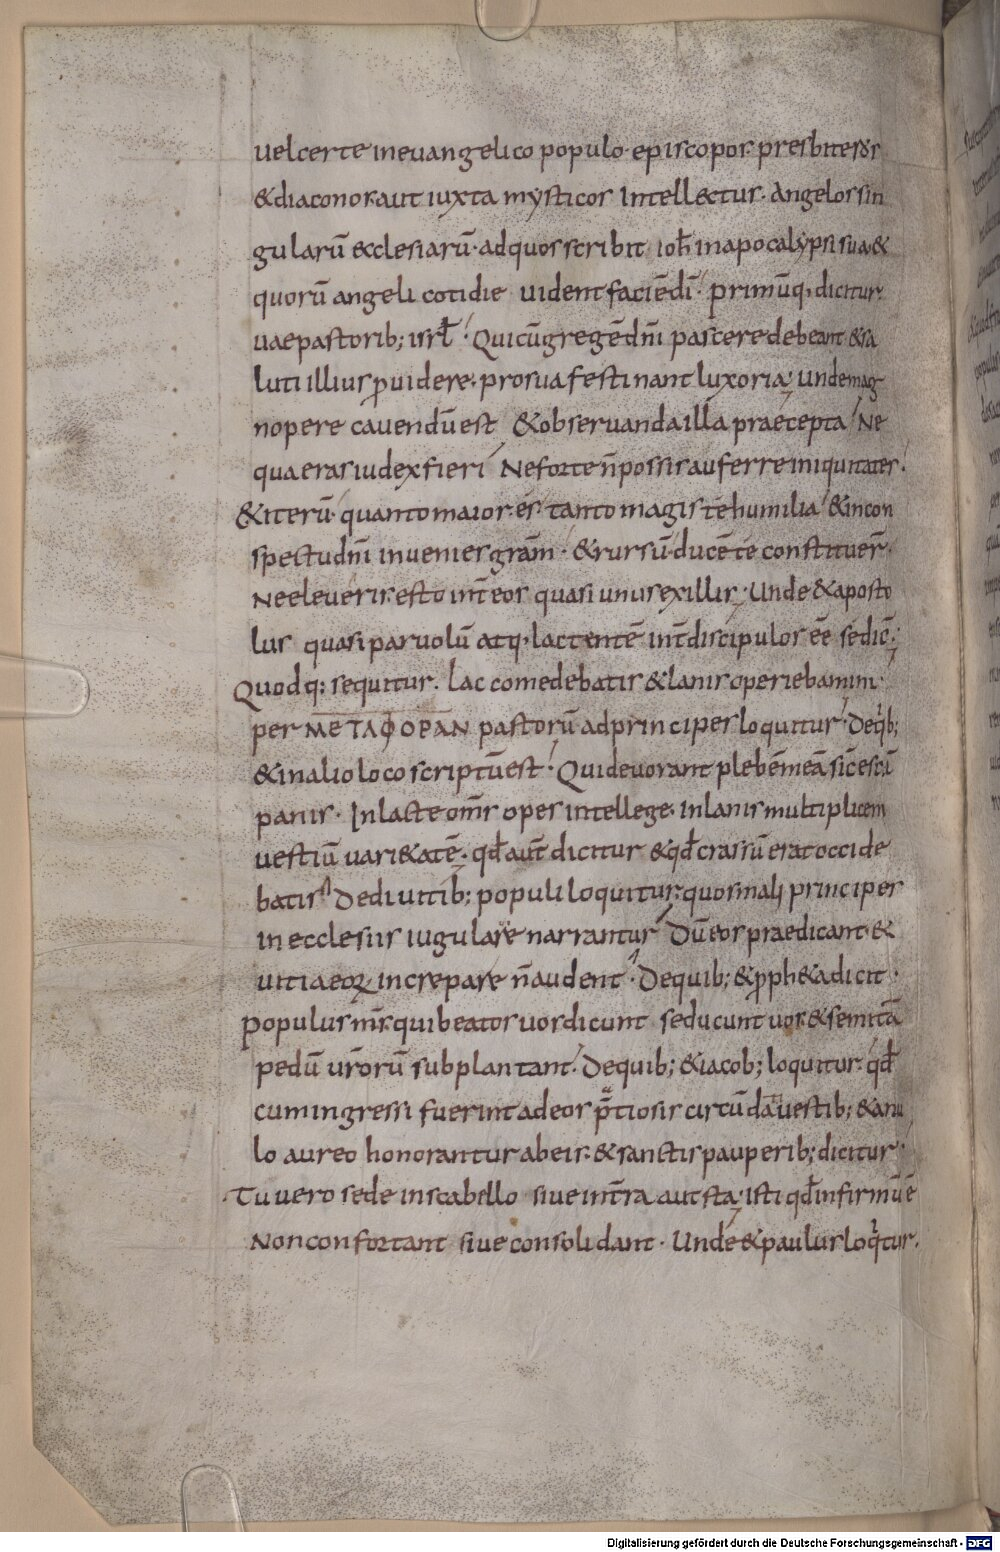 uel certe in euangelico populo· episcopos· presbiteros
&diaconos· aut iuxta mysticos intell&ctus· Angelos sin
gularū &cclesiarū· ad quos scribit ioh̄ in apocalypsi sua·&
quorū angeli cotidie uident faciē dī· primūq; dicitur
uae pastorib; isrl̄· Quicū gregē dn̄i pascere debeant &sa
luti illius ꝓuidere· pro sua festinant luxoria; unde mag
nopere cauendū est &obseruanda illa praecepta Ne
quaeras iudex fieri Ne forte n̄ possis auferre iniquitates·
&iterū· quanto maior es tanto magis te humilia &in con
spectu dn̄i inuenies gram̄· &rursū· ducē te constituer̄·
Ne eleueris· esto int̄ eos quasi unus ex illis; Unde &aposto
lus quasi paruolū atq; lactentē int̄ discipulos eē se dic̄;
Quodq; sequitur· lac comedebatis &lanis operiebamini·
per METAΦORAN pastorū ad principes loquitur· De q̇b;
&in alio loco scriptū est· Qui deuorant plebē meā sic̄ escā
panis· In lacte om̄s opes intellege· in lanis multiplicem
uestiū uari&atē· qd̄ aut̄ dicitur &qd̄ crassū erat occide
batis De diuitib; populi loquitur· quos mali principes
in ecclesiis iugulare narrantur Dū eos praedicant·&
uitia eoꝝ increpare n̄ audent· De quib; &ꝓph&a dicit·
populus ms̄ qui beatos uos dicunt seducunt uos &semitā
pedū ur̄orū subplantant· De quib; &iacob; loquitur· qd̄
cum ingressi fuerint ad eos p̄tiosis circūdati uestib; &anu
lo aureo honorantur ab eis· &sanctis pauperib; dicitur·
Tu uero sede in scabello siue int̄ra aut sta; isti qd̄ infirmū ē
Non confortant siue consolidant· Unde &paulus loq̇tur·
Digitalisierung gefördert durch die Deutsche Forschungsgemeinschaft - DFG